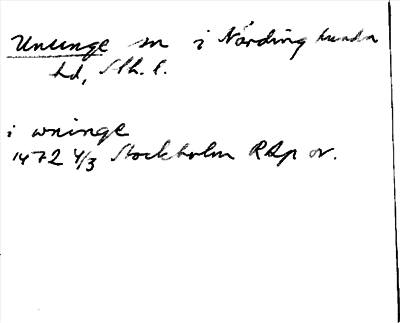 Ununge sn i Närdinghundra
hd, Sth. l.
i wninge
1472 4/3 Stockholm RAp or.